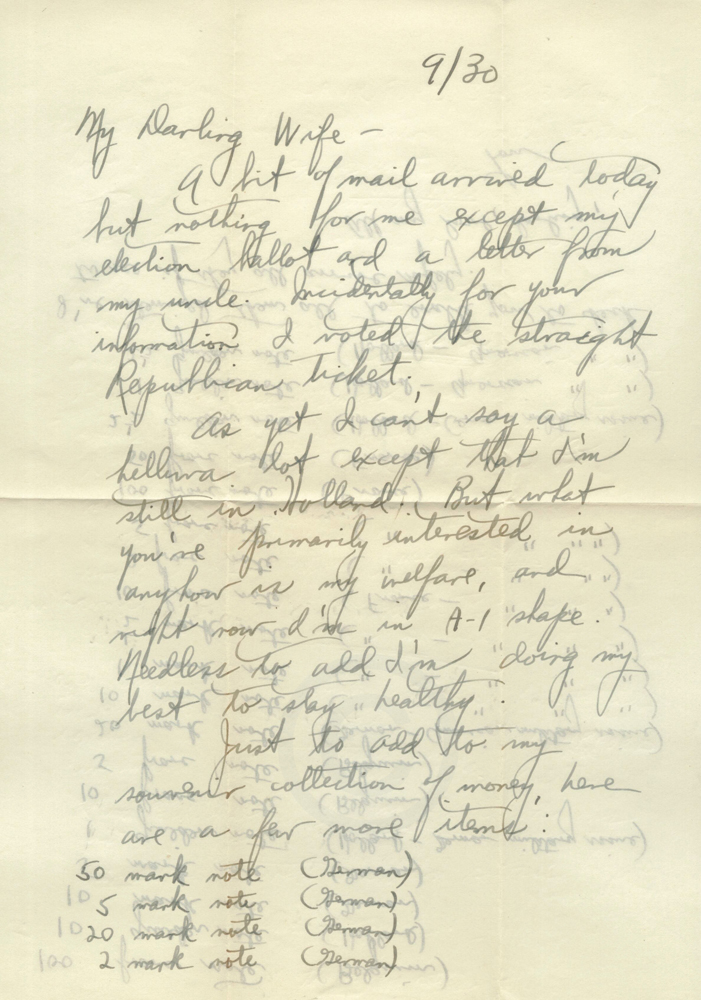 9/30
My Darling Wife —
A bit of mail arrived today
but nothing for me except my
election ballot and a letter from
my uncle. Incidentally for your
information I voted the straight
Republican ticket.
As yet I can't say a
helluva lot except that I'm
still in Holland. But what
you're primarily interested in
anyhow is my welfare, and
right now I'm in A-1 shape.
Needless to add I'm "doing my
best to stay healthy".
Just to add to my
souvenir collection of money, here
are a few more items:
50 mark note (German)
5 mark note (German)
20 mark note (German)
2 mark note (German)